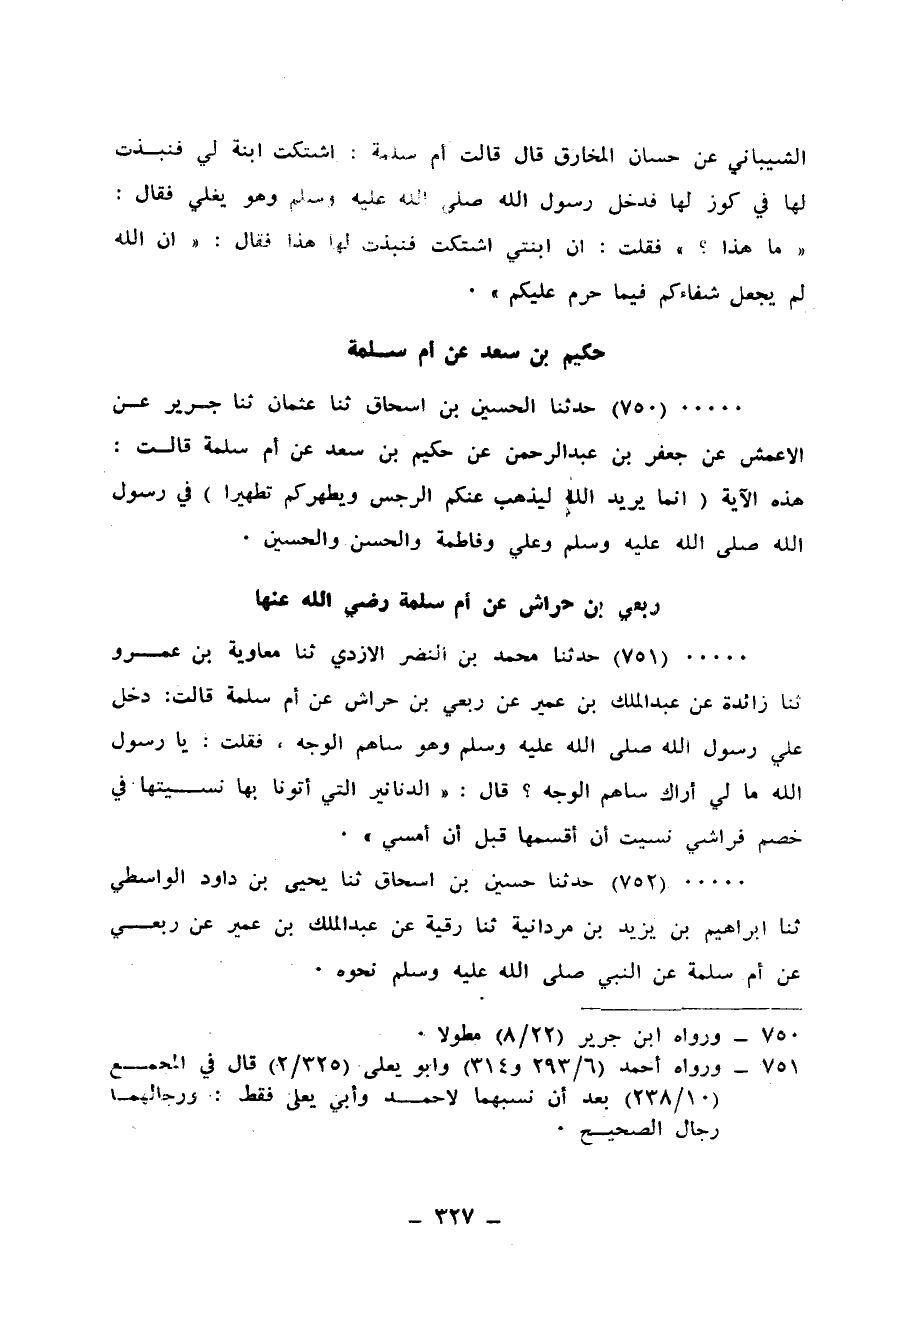 الشيباني عن حسان المخارق قال قالت أم سلمة : اشتكت ابنة لي فنبـذت
لها في كوز لها فدخل رسول الله صلى الله عليه وسلم وهو يغلي فقال :
« ما هذا ؟ » فقلت : ان ابنتي اشتكت فنبذت لها هذا فقال : « ان الله
لم يجعل شفاءكم فيما حرم عليكم » ٠
حكيم بن سعد عن أم سـلمة
٠٠٠٠٠ (٧٥٠) حدثنا الحسين بن اسحاق ثنا عثمان ثنا جـرير عـن
الاعمش عن جعفر بن عبدالرحمن عن حكيم بن سعد عن أم سلمة قالـت :
هذه الآية ( انما يريد الله ليذهب عنكم الرجس ويطهركم تطهيرا ) في رسول
الله صلى الله عليه وسلم وعلي وفاطمة والحسن والحسين ٠
ربعي بن حراش عن أم سلمة رضي الله عنها
٠٠٠٠٠ (٧٥١) حدثنا محمد بن النضر الازدي ثنا معاوية بن عمـرو
ثنا زائدة عن عبدالملك بن عمير عن ربعي بن حراش عن أم سلمة قالت: دخل
علي رسول الله صلى الله عليه وسلم وهو ساهم الوجه ، فقلت : يا رسول
الله ما لي أراك ساهم الوجه ؟ قال : « الدنانير التي أتونا بها نسـيتها في
خصم فراشي نسيت أن أقسمها قبل أن أمسي » ٠
٠٠٠٠٠ (٧٥٢) حدثنا حسين بن اسحاق ثنا يحيى بن داود الواسطي
ثنا ابراهيم بن يزيد بن مردانية ثنا رقية عن عبدالملك بن عمير عن ربعـي
عن أم سلمة عن النبي صلى الله عليه وسلم نحوه ٠
٧٥٠ ـ ورواه ابن جرير (٨/٢٢) مطولا ٠
٧٥١ ـ ورواه أحمد (٢٩٣/٦ و٣١٤) وابو يعلى (٢/٣٢٥) قال في المجمـع
(٢٣٨/١٠) بعد أن نسبهما لاحمـد وأبي يعلى فقط : ورجالهمـا
رجال الصحيـح ٠
ـ ٣٢٧ ـ